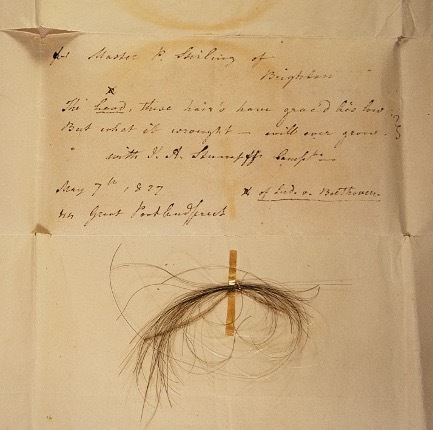 for Master P. Stirling of
Brighton
x
The head, these hair's have grac'd lies low
But what it wrought – will ever grow.
with J. A. Stumpff's
May 7th, 1827
Great Portland street
x of Ludv. v. Beethoven.